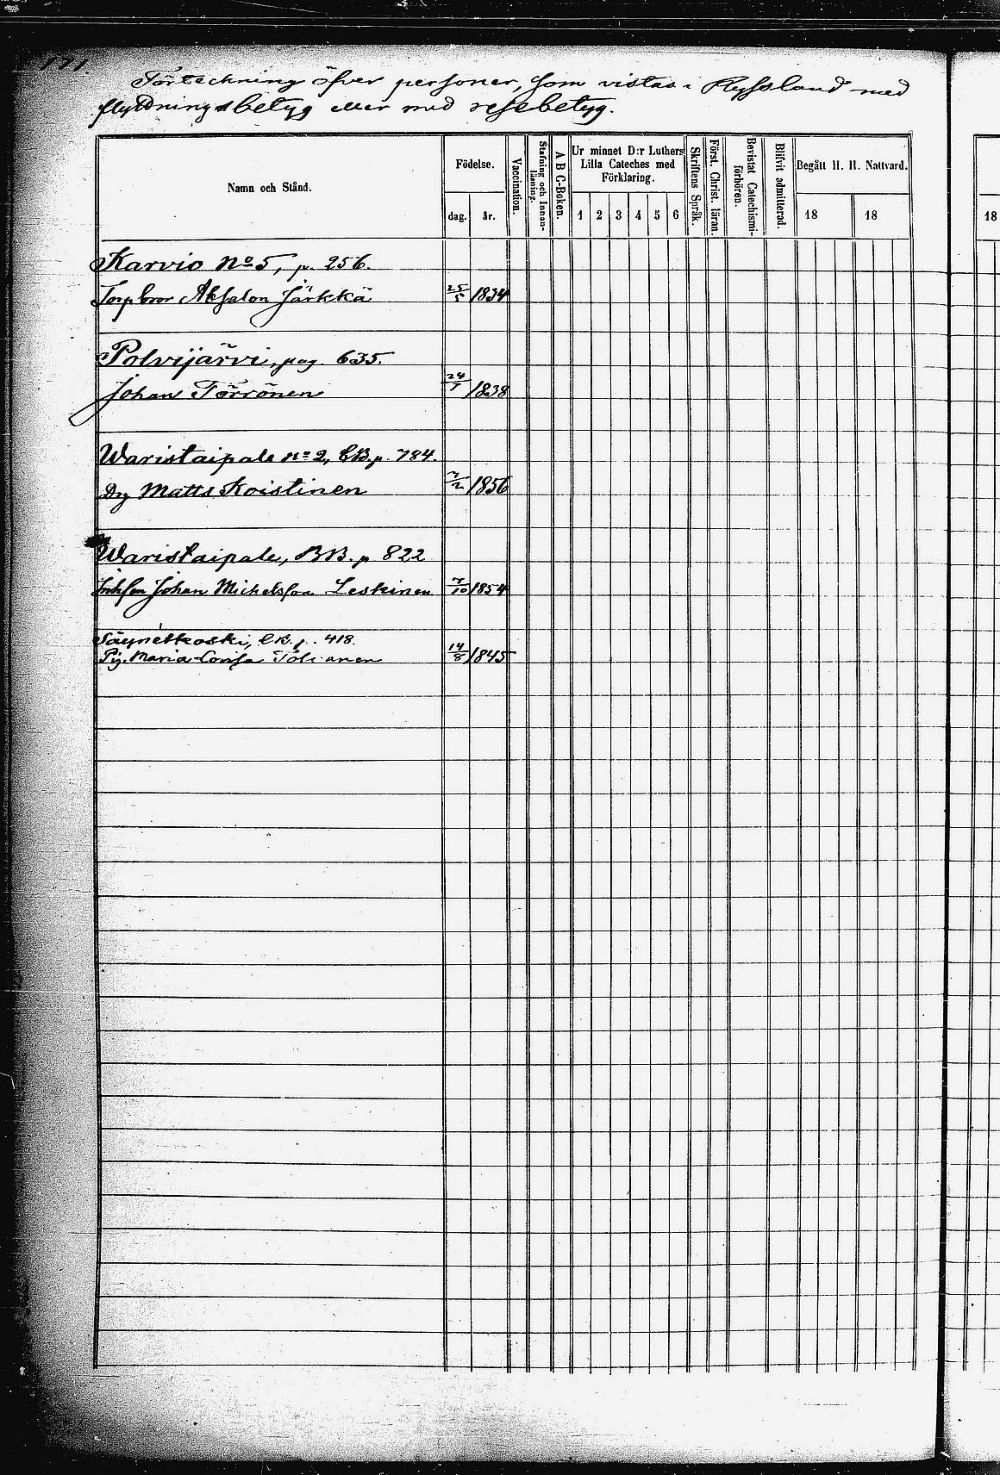 171.
Förteckning öfver personer, som vistas i Ryssland med
flyttningsbetyg eller med resebetyg.
Namn och Stånd.
Födelse.
dag.
år.
Vaccination.
Stafning och Innanläsning.
A B C-Boken.
Ur minnet D:r Luthers
Lilla Cateches med
Förklaring.
1 2 3 4 5 6
Skriftens Språk.
Först. Christ. läran.
Bevistat Catechismi-
förhören.
Blifvit admitterad.
Begått H. H. Nattvard.
18
18
18
Karvio No 5, p. 256.
Absalon Järkkä 25/5 1834
Polvijärvi, pag. 635.
Johan Törrönen 24/7 1838
Waristaipale no 2, CB. p. 784.
Dg Matts Koistinen 7/2 1856
Waristaipale, BB. p 822
Johan Michelsson Leskinen 7/10 1854
Säynetkoski, CB. p. 418.
Pig. Maria Lovisa 14/8 1845